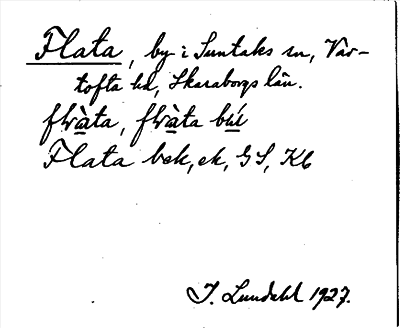 Flata, by i Suntaks sn, Var-
tofta hd, Skaraborgs län.
flàta, flàta bý
Flata bek, ek, GS, Kb
I. Lundahl 1927.